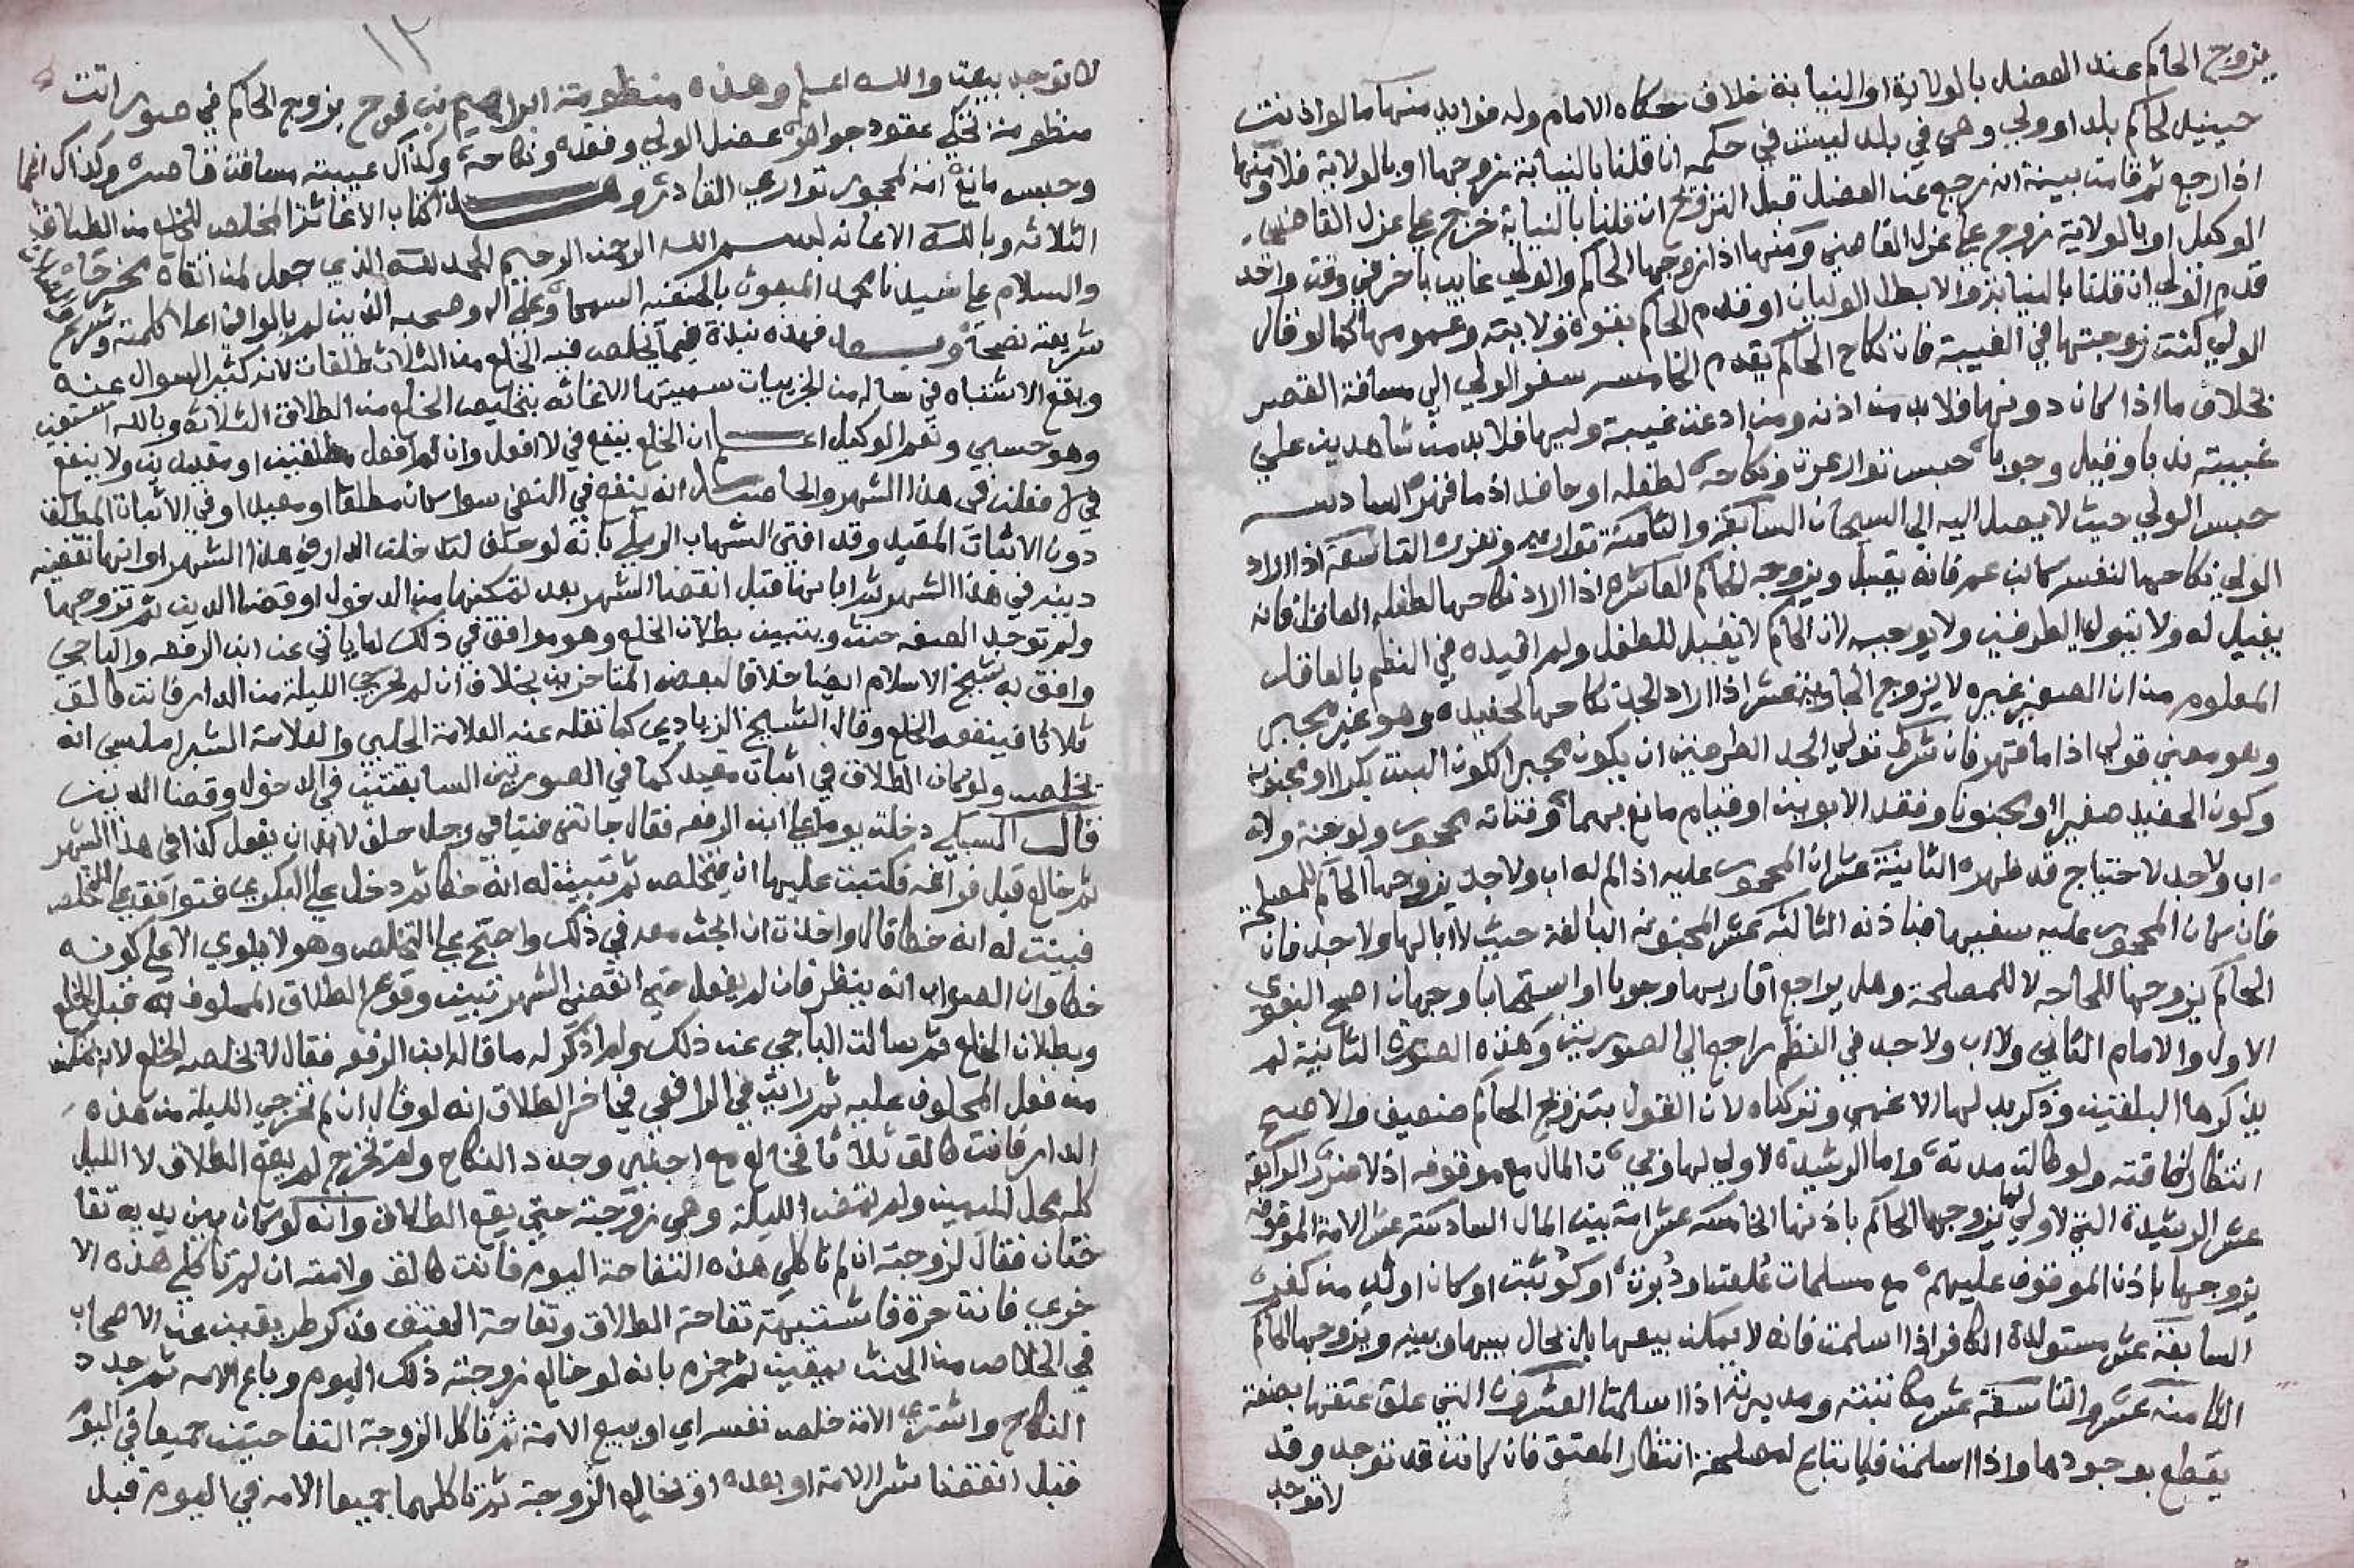 يزوج الحاكم عند العضل بالولاية او النيابة خلاف حكاه الامام وله فوايد منها ما لو اذنت
حينيذ لحاكم بلد او ولي وهي في بلد ليست في حكمه ان قلنا بالنيابة زوجها او بالولاية فلا ومنها
اذا رجع ثم قامت بينة انه رجع عن العضل قبل التزويج ان قلنا بالنيابة خرج على عزل القاضي
الوكيل او بالولاية زوج على عزل القاضي ومنها اذا زوجها الحاكم والولي غايب باخر في وقت واحد
قدم الولي ان قلنا بالنيابة والا بطل الوليان او قدم الحاكم بقوة ولايته وعمومها كما لو قال
الولي كنت زوجتها في الغيبة فان نكاح الحاكم يقدم الخامس سفر الولي الى مسافة القصر
بخلاف ما اذا كان دونها فلا بد من اذنه ومن ادعت غيبة وليها فلا بد من شاهدين على
غيبته ندبا وقيل وجوبا حبس توار عزة ونكاحه لطفله او حافد اذ ما قهره السادس
حبس الولي حيث لا يصل اليه الى السجان السابعة والثامنة تواريه وتعززه التاسعة اذا اراد
الولي نكاحها لنفسه كابن عم فانه يقبل ويزوجه الحاكم العاشرة اذا اراد نكاحها لطفله العاقل فانه
يقبل له ولا يتولى الطرفين ولا يوجبه لان الحاكم لا يقبل للطفل ولم اقيده في النظم بالعاقل
المعلوم من ان الصغير غيره لا يزوج الحادية عشر اذا اراد الجد نكاحها لحفيده وهو غير مجبر
وهو معنى قولي اذا ما قهر فان شرط تولي الجد الطرفين ان يكون مجبرا لكون البنت بكرا او مجنونة
وكون الحفيد صغيرا او مجنونا وفقد الابوين او قيام مانع بهما وفتاته محجور ولو جنة ولا
اب ولا جد لاحتياج قد ظهره الثانية عشر ان المحجور عليه اذا لم له اب ولا جد يزوجها الحاكم للمصلحة
فان كان المحجور عليه سفيها فباذنه الثالثة عشر المجنونة البالغة حيث لا ابا لها ولا جد فان
الحاكم يزوجها للحاجة لا للمصلحة وهل يراجع اقاربها وجوبا او استحبابا وجهان اصح البغوي
الاول والامام الثاني ولا اب ولا جد في النظم راجع الى الصورتين وهذه الصورة الثانية لم
يذكرها البلقيني وذكر بدلها الاغمي وتركناه لان القول بتزويج الحاكم ضعيف والاصح
انتظار افاقته ولو طالت مدته واما الرشيدة لا ولي لها وفي بيت المال مع موقوفه اذ لا ضرر الرابعة
عشر الرشيدة التي لا ولي لها يزوجها الحاكم باذنها الخامسة عشر امة بيت المال السادسة عشر الامة الموقوفة
يزوجها باذن الموقوف عليهم مع مسلمات علقت او دبرت او كوتبت او كان اولد من كفر
السابعة عشر مستولدة الكافر اذا اسلمت فانه لا يمكن بيعها بل نحال بينها وبينه ويزوجها الحاكم
الثامنة عشر والتاسعة عشر مكاتبته ومدبرته اذا اسلمتا العشرون التي علق عتقها بصفة
يقطع بوجودها واذا اسلمت فلا تباع لمصلحة انتظار المعتق فان كانت قد توجد وقد
لا توجد
١٢
لا توجد بيعت والله اعلم وهذه منظومة ابراهيم بن فوح يزوج الحاكم في صور اتت
منظومة تحكي عقود جواهر عضل الولي وفقده ونكاحه وكذاك غيبته مسافة قاصر وكذاك اغما
وحبس مانع امة لمحجور تواري القادر و هذا كتاب الاغاثة المخلص للخلع من الطلاق
الثلاثة وبالله الاعانة بسم الله الرحمن الرحيم الحمد لله الذي جعل لمن اتقاه مخرجا
والسلام على سيدنا محمد المبعوث بالحنفية السمحا وعلى اله وصحبه الذين لم يالوا في اعلا كلمته وشرع
شريعته نصحا وبعد فهذه نبذة فيما يخلص فيه الخلع من الثلاث طلقات لانه كثير السوال عنه
ويقع الاشتباه في مساله من الجزييات سميتها الاغاثة بتخليص الخلع من الطلاق الثلاثة وبالله استعين
وهو حسبي ونعم الوكيل اعلم ان الخلع ينفع في لا افعل وان لم افعل مطلقين او مقيدين ولا ينفع
في لا فعلن في هذا الشهر والحاصل انه ينفع في النفي سوا كان مطلقا او مقيدا وفي الاثبات المطلق
دون الاثبات المقيد وقد افتى الشهاب الرملي بانه لو حلف لتدخلن الدار في هذا الشهر او انها تقضيه
دينه في هذا الشهر ثم ابانها قبل انقضا الشهر بعد تمكنها من الدخول او قضا الدين ثم تزوجها
ولم توجد الصفة حنث ويتبين بطلان الخلع وهو موافق في ذلك لما ياتي عن ابن الرفعه والباجي
وافق به شيخ الاسلام ايضا خلافا لبعض المتاخرين بخلاف ان لم تخرجي الليلة من الدار فانت طالق
ثلاثا فينفعه الخلع وقال الشيخ الزيادي كما نقله عنه العلامة الحلبي والعلامة الشبراملسي انه
تخلص ولو كان الطلاق في اثبات مقيد كما في الصورتين السابقتين في الدخول وقضا الدين
قال السبكي دخلت يوما على ابن الرفعه فقال جاتني فتيا في رجل حلف لا بد ان يفعل كذا في هذا الشهر
ثم خالع قبل فراغه فكتبت عليها ان يتخلص ثم تبينت له انه خطا ثم دخل على البكري فتوافق على التخلص
فبينت له انه خطا قال واخذت ان ابحث معه في ذلك واحتج على التخلص وهو لا يلوي الا على كونه
خطا وان الصواب انه ينظر فان لم يفعل حتى انقضى الشهر تبين وقوع الطلاق المحلوف به قبل الخلع
وبطلان الخلع ثم سالت الباجي عن ذلك ولم اذكر له ما قاله ابن الرفعه فقال لا يخلصه الخلع لانه تمكن
من فعل المحلوف عليه ثم رايت في الرافعي في اخر الطلاق انه لو قال ان لم تخرجي الليلة من هذه
الدار فانت طالق ثلاثا فخالع مع اجنبي وجدد النكاح ولم تخرج لم يقع الطلاق لا الليل
كله محل لليمين ولم تمض الليلة وهي زوجته حتى يقع الطلاق وانه لو كان بين يديه تفا
حتان فقال لزوجته ان لم تاكلي هذه التفاحة اليوم فانت طالق ولامته ان لم تاكلي هذه الا
خرى فانت حرة فاشتبهت تفاحة الطلاق وتفاحة العتق فذكر طريقين عند الاصحاب
في الخلاص من الحنث بيقين ثم جزم بانه لو خالع زوجته ذلك اليوم وباع الامه ثم جدد
النكاح واشترى الامة خلص نفسه اي او يبيع الامة ثم تاكل الزوجة التفاحتين جميعا في اليوم
قبل انقضا شرا الامة او بعده او نخالع الزوجة ثم تاكلهما جميعا الامه في اليوم قبل